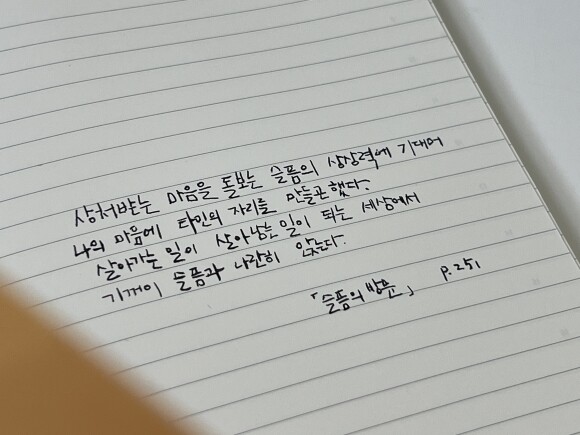 상처받는 마음을 돌보는 슬픔의 상상력에 기대어
나의 마음에 타인의 자리를 만들곤 했다.
살아가는 일이 살아남는 일이 되는 세상에서
기꺼이 슬픔과 나란히 앉는다.
「슬픔의 방문」 p.251